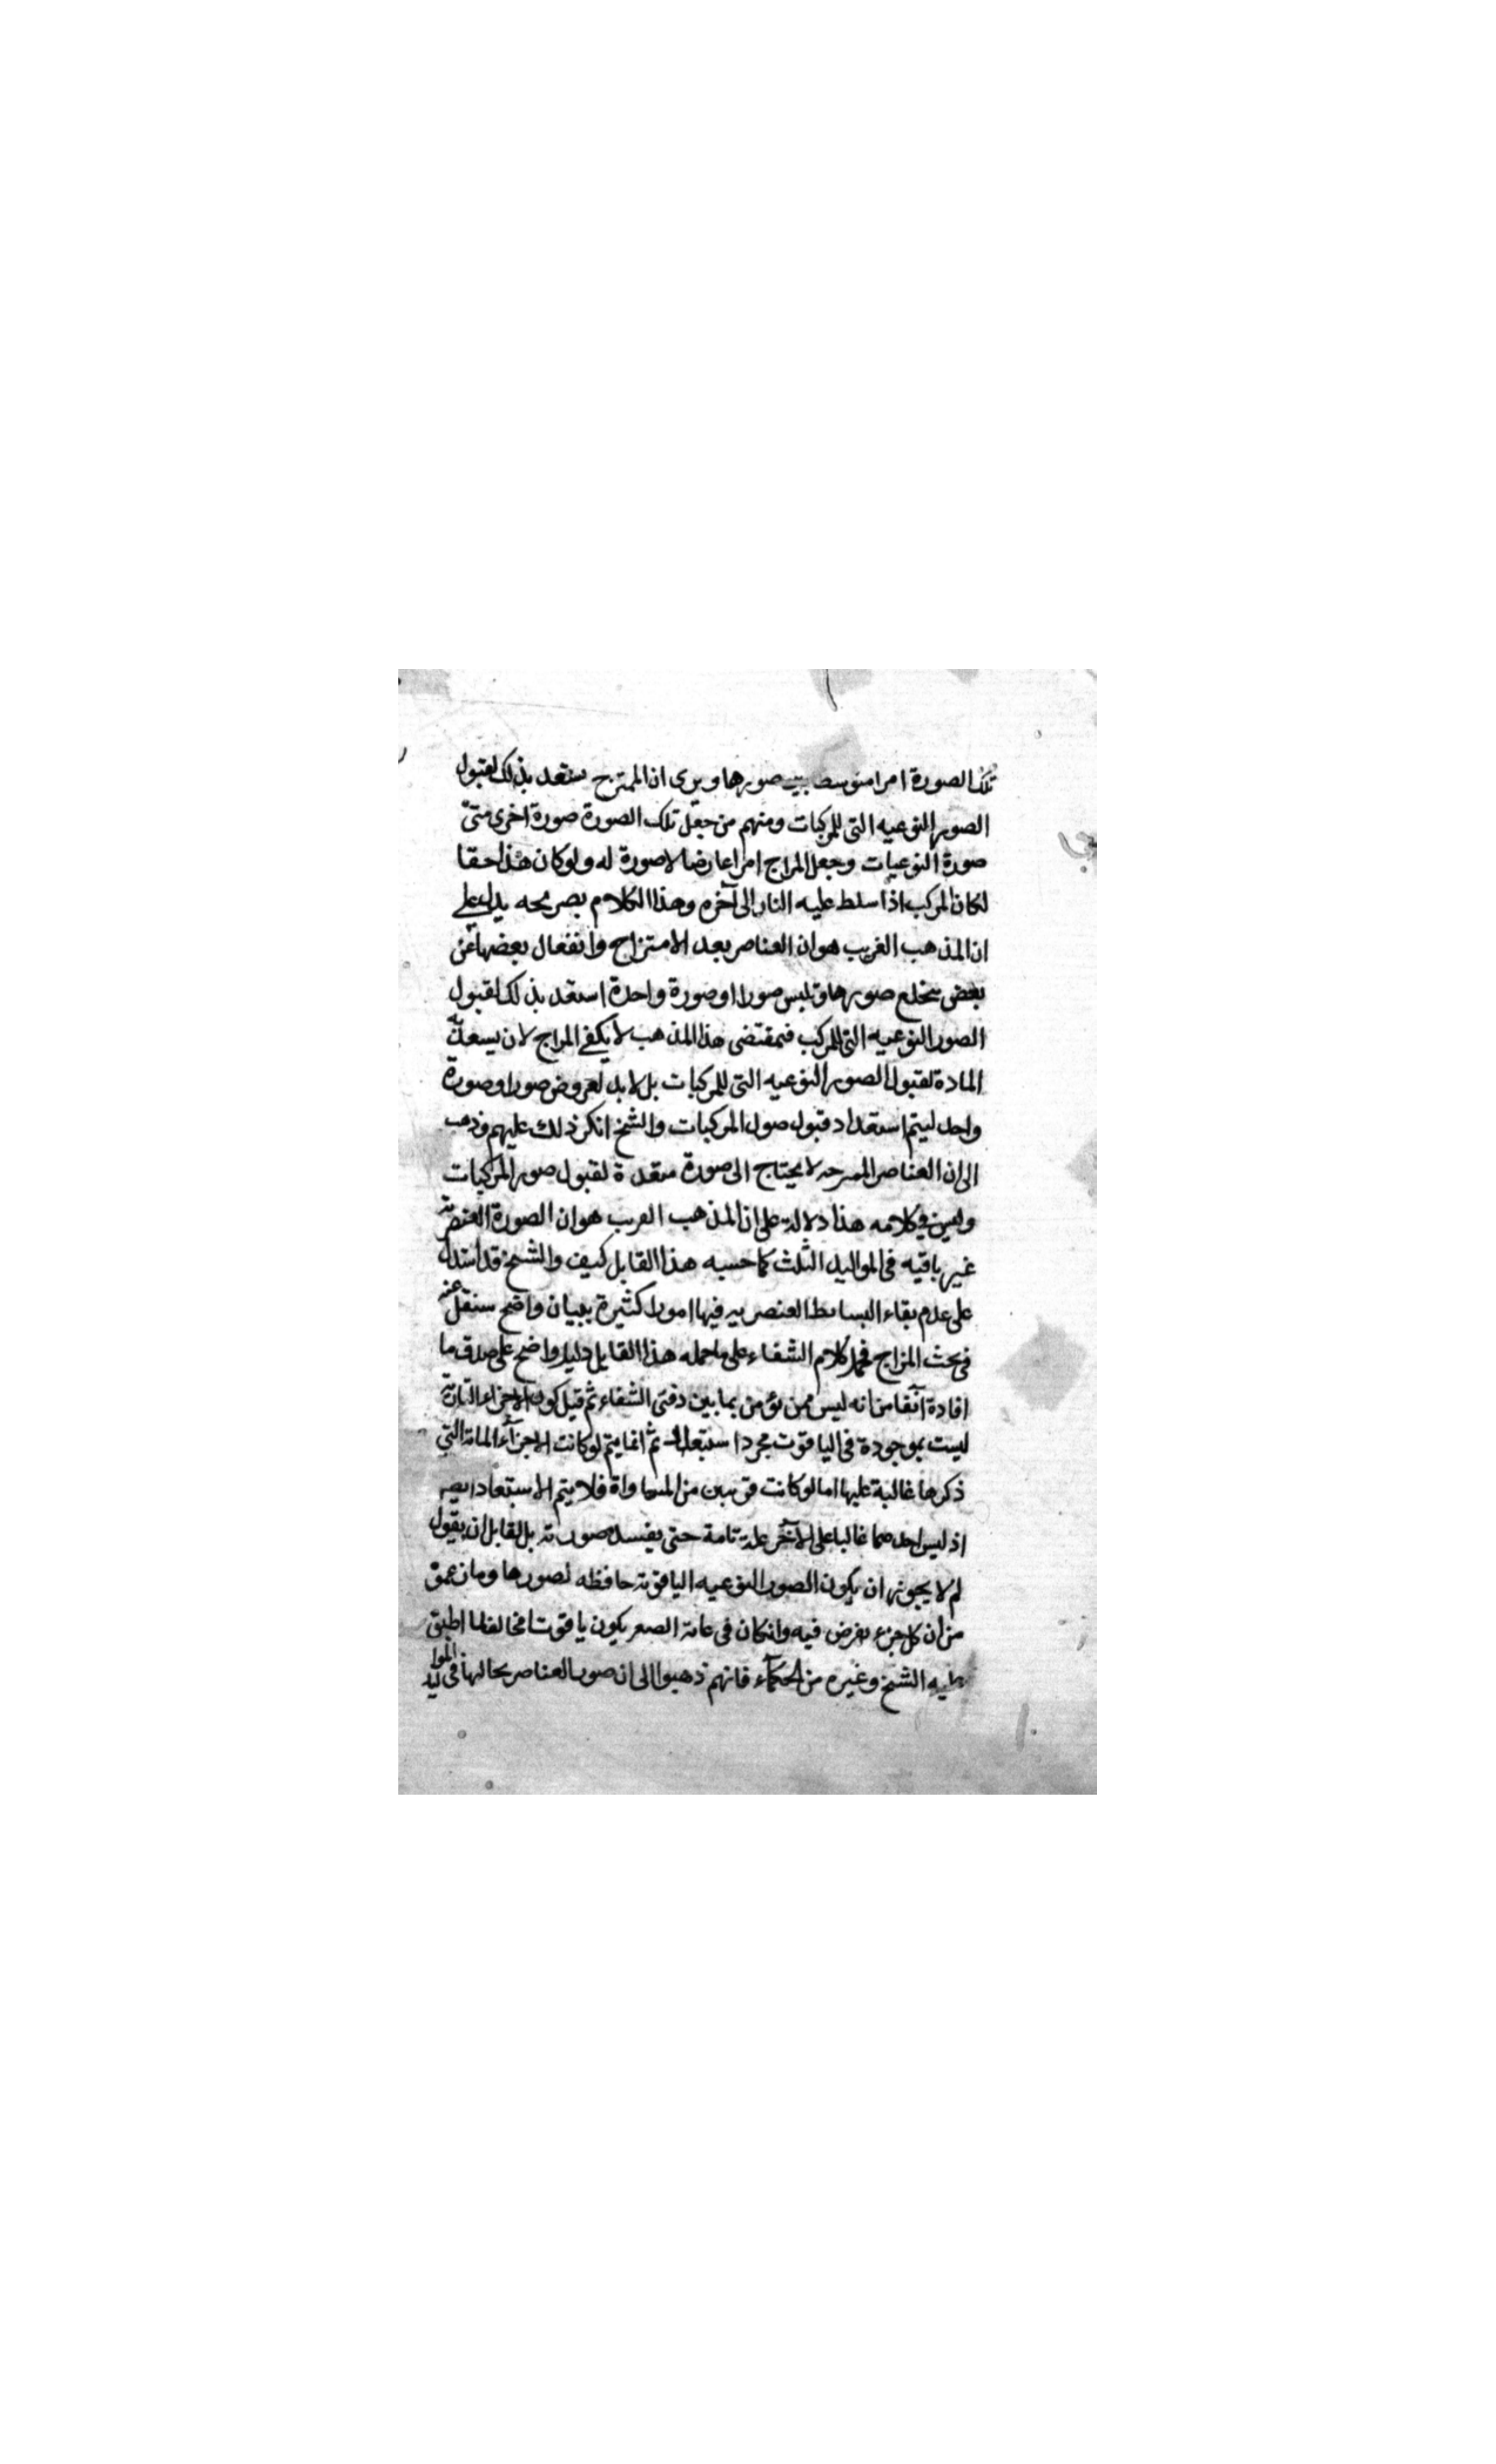 تلك الصورة امرا متوسطا بين صورها ويرى ان الممتزج يستعد بذلك لقبول
الصور النوعيه التى للمركبات ومنهم من جعل تلك الصورة صورة اخرى
صورة النوعيات وجعل المزاج امرا عارضا لا صورة له ولو كان هذا حقا
لكان المركب اذا سلط عليه النار الى آخره وهذا الكلام بصريحه يدل على
ان المذهب الغريب هو ان العناصر بعد الامتزاج وانفعال بعضها عن
بعض تخلع صورها وتلبس صورا او صورة واحدة استعد بذلك لقبول
الصور النوعيه التى للمركب فمقتضى هذا المذهب لا يكفى المزاج لان يستعد به
المادة لقبول الصور النوعيه التى للمركبات بل لابد لعروض صور او صورة
واحد ليتم استعداد قبول صول المركبات والشيخ انكر ذلك عليهم وذهب
الى ان العناصر الممتزجه لا يحتاج الى صورة معدة لقبول صور المركبات
وليس فى كلامه هذا دلالة على ان المذهب الغريب هو ان الصورة العنصرية
غير باقيه فى المواليد الثلث كما حسبه هذا القايل كيف والشيخ قد استدل
على عدم بقاء البسايط العنصريه فيها امورا كثيرة ببيان واضح سنقل عنه
فى بحث المزاج فحمل كلام الشفاء على ما حمله هذا القايل دليل واضح على صدق ما
افادة آنفا من انه ليس ممن يؤمن بما بين دفتى الشفاء ثم قيل كون الاجزاء النارية
ليست بموجودة فى الياقوت مجرد استبعاد ثم انما يتم لو كانت الاجزآء المائية التى
ذكرها غالبة عليها اما لو كانت قريبين من المساواة فلا يتم الاستبعاد ايضا
اذ ليس احدهما غالبا على الآخر غلبة تامة حتى يفسد صورته بل للقايل ان يقول
لم لا يجوز ان يكون الصور النوعيه الياقوتيه حافظه لصورها وما
من ان كل جزء يفرض فيه وانكان فى غاية الصغر يكون ياقوتا مخالفا لما اطبق
عليه الشيخ وغيره من الحكمآء فانهم ذهبوا الى ان صور العناصر بحالها فى المواليد